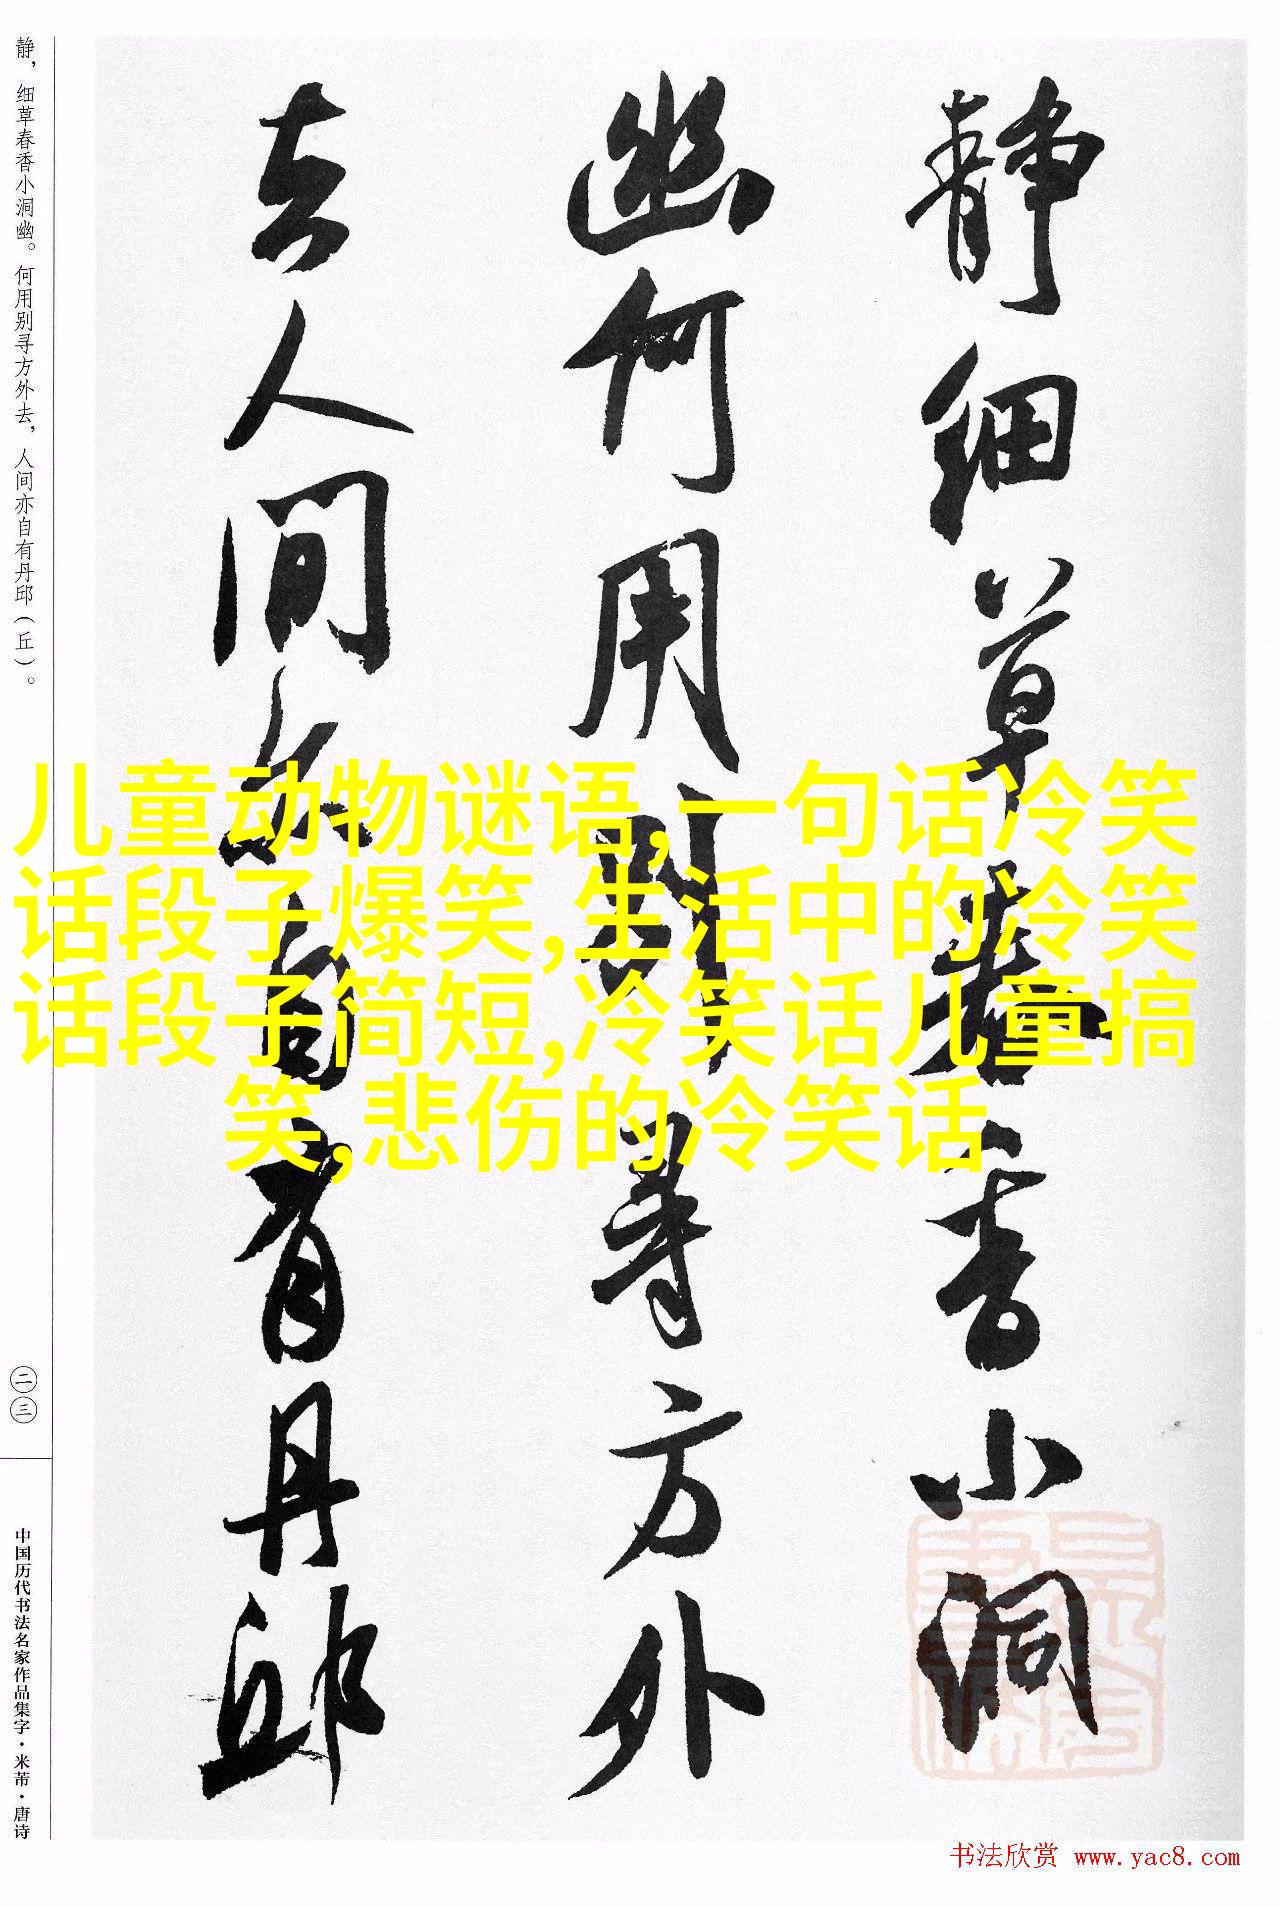 静细草春香小洞
幽何用别寻方外
去人间亦自有丹邱
静，细草春香小洞幽。何用别寻方外去，人间亦自有丹邱（丘）。
二三
中国历代书法名家作品集字·米芾·唐诗
儿童动物谜语,一句话冷笑
话段子爆笑,生活中的冷笑
话段子简短,冷笑话儿童搞
笑,悲伤的冷笑话
书法欣赏 www.yac8.com